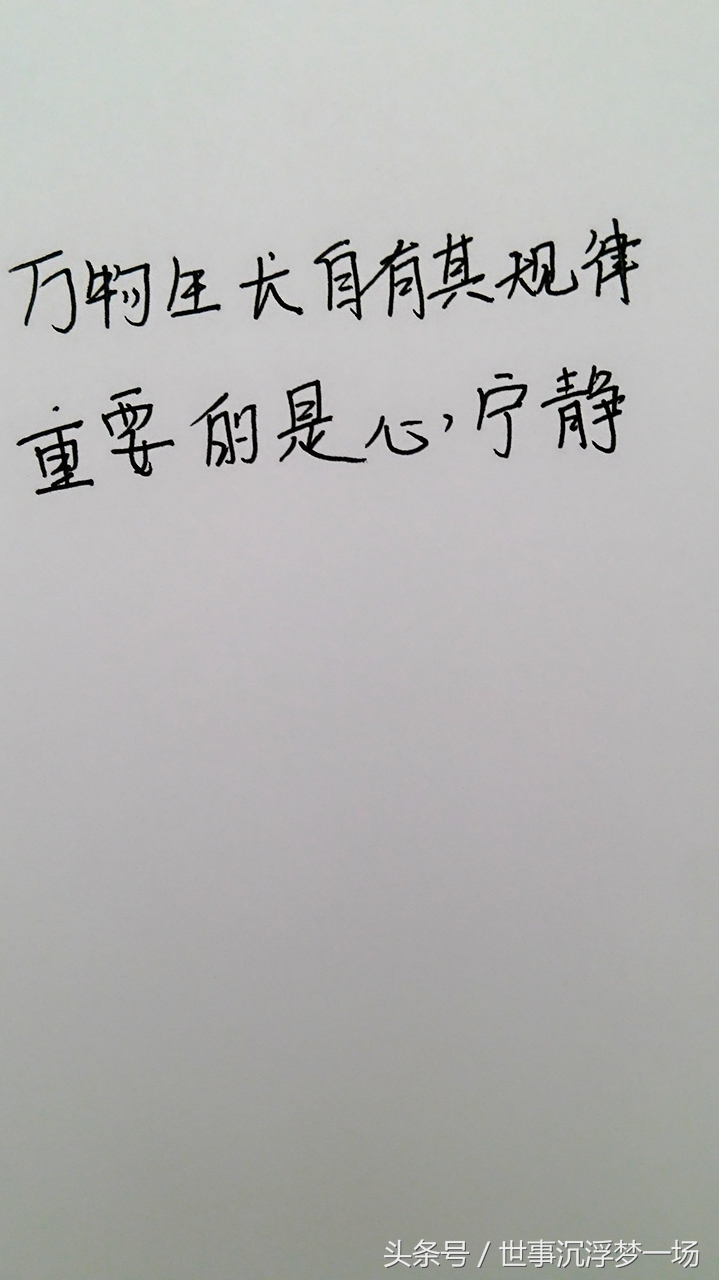 万物生长自有其规律
重要的是心宁静
头条号 / 世事沉浮梦一场